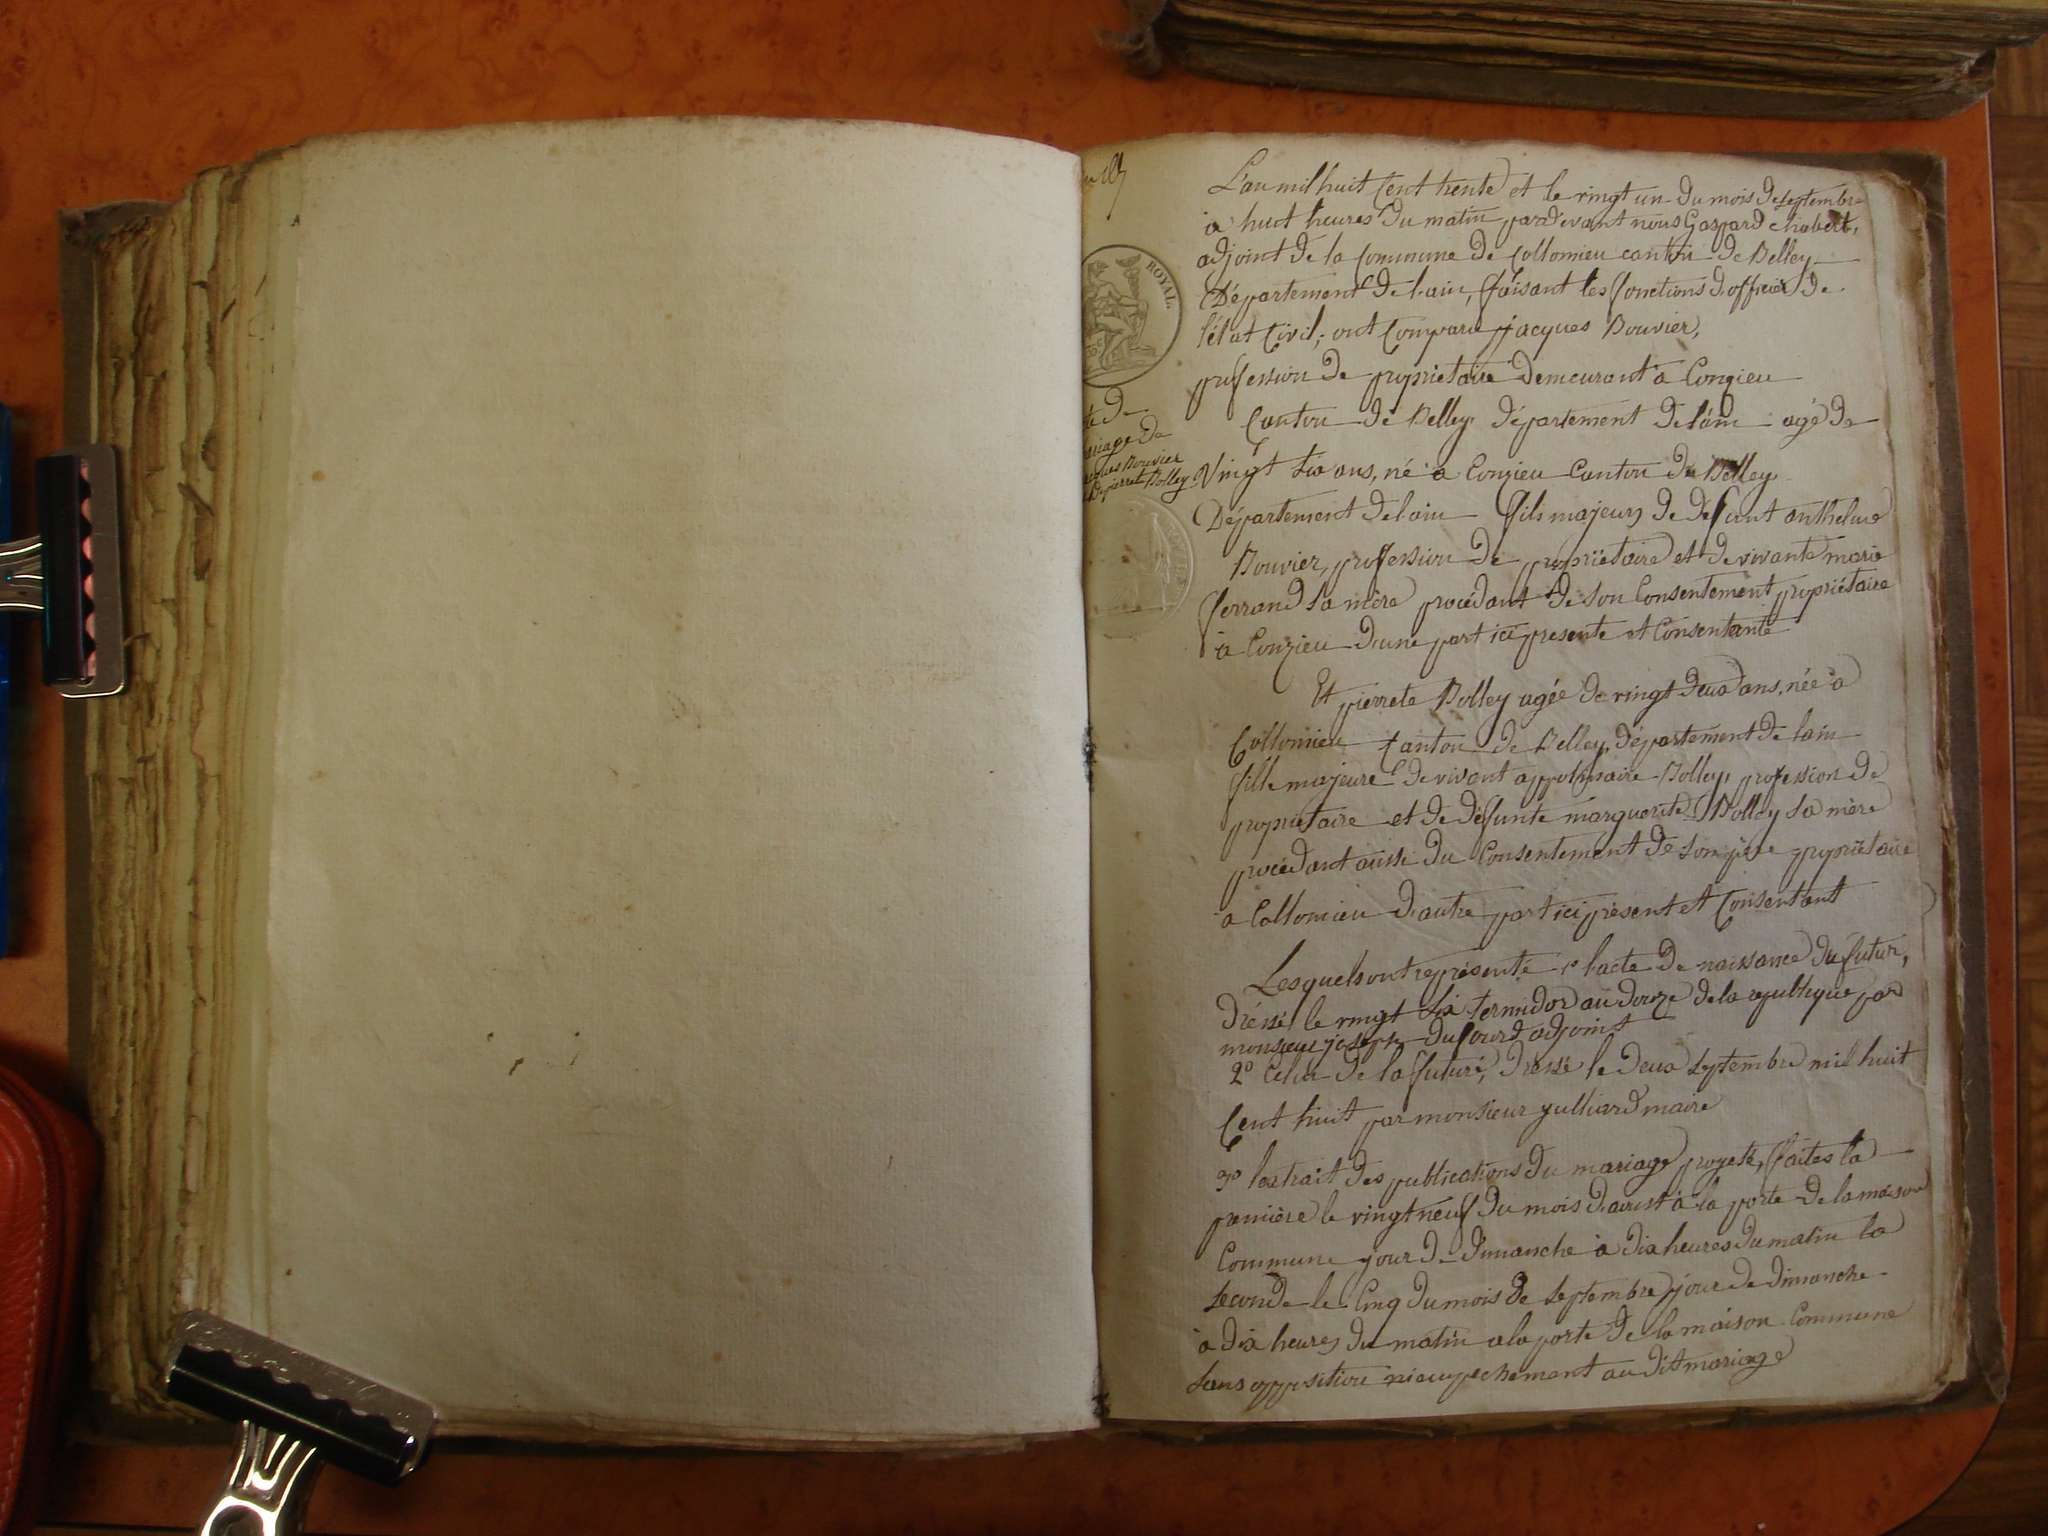 ROYAL
L'an mil huit Cent trente et le vingt un du mois de septembre
à huit heures du matin pardevant nous Gaspard chabert,
adjoint de la Commune de Collomieu canton de Belley
Département de l'ain, faisant les fonctions d'officier de
l'état Civil, ont Comparu jacques Bouvier,
profession de propriétaire demeurant à Conzieu
Canton de Belley département de l'ain agé de
Vingt six ans, né à Conzieu Canton de Belley
Département de l'ain fils majeur de defunt anthelme
Bouvier, profession de propriétaire et de vivante marie
ferrand sa mère procédant de son Consentement propriétaire
à Conzieu d'une part ici presente et Consentante
de
mariage de
jacques Bouvier
De pierrete Bolley
Et pierrete Bolley agée de vingt deux ans, née à
Collomieu Canton de Belley, département de l'ain
fille majeure de vivant appolinaire Bolley, profession de
propriétaire et de défunte marguerite Bolley sa mère
procédant aussi du Consentement de son père propriétaire
a Collomieu d'autre part ici présent et Consentant
Lesquels ont représenté 1º l'acte de naissance du futur,
dréssé le vingt six termidor an douze de la republique par
monsieur joseph Dufourd adjoint
2º Celui de la future, dressé le deux septembre mil huit
Cent huit par monsieur julliard maire
3º l'extrait des publications du mariage projeté, faites la
première le vingt neuf du mois d'aoust à la porte de la maison
Commune jour de dimanche à dix heures du matin la
seconde le Cinq du mois de septembre jour de dimanche
à dix heures du matin a la porte de la maison Commune
sans opposition ni empechement au dit mariage